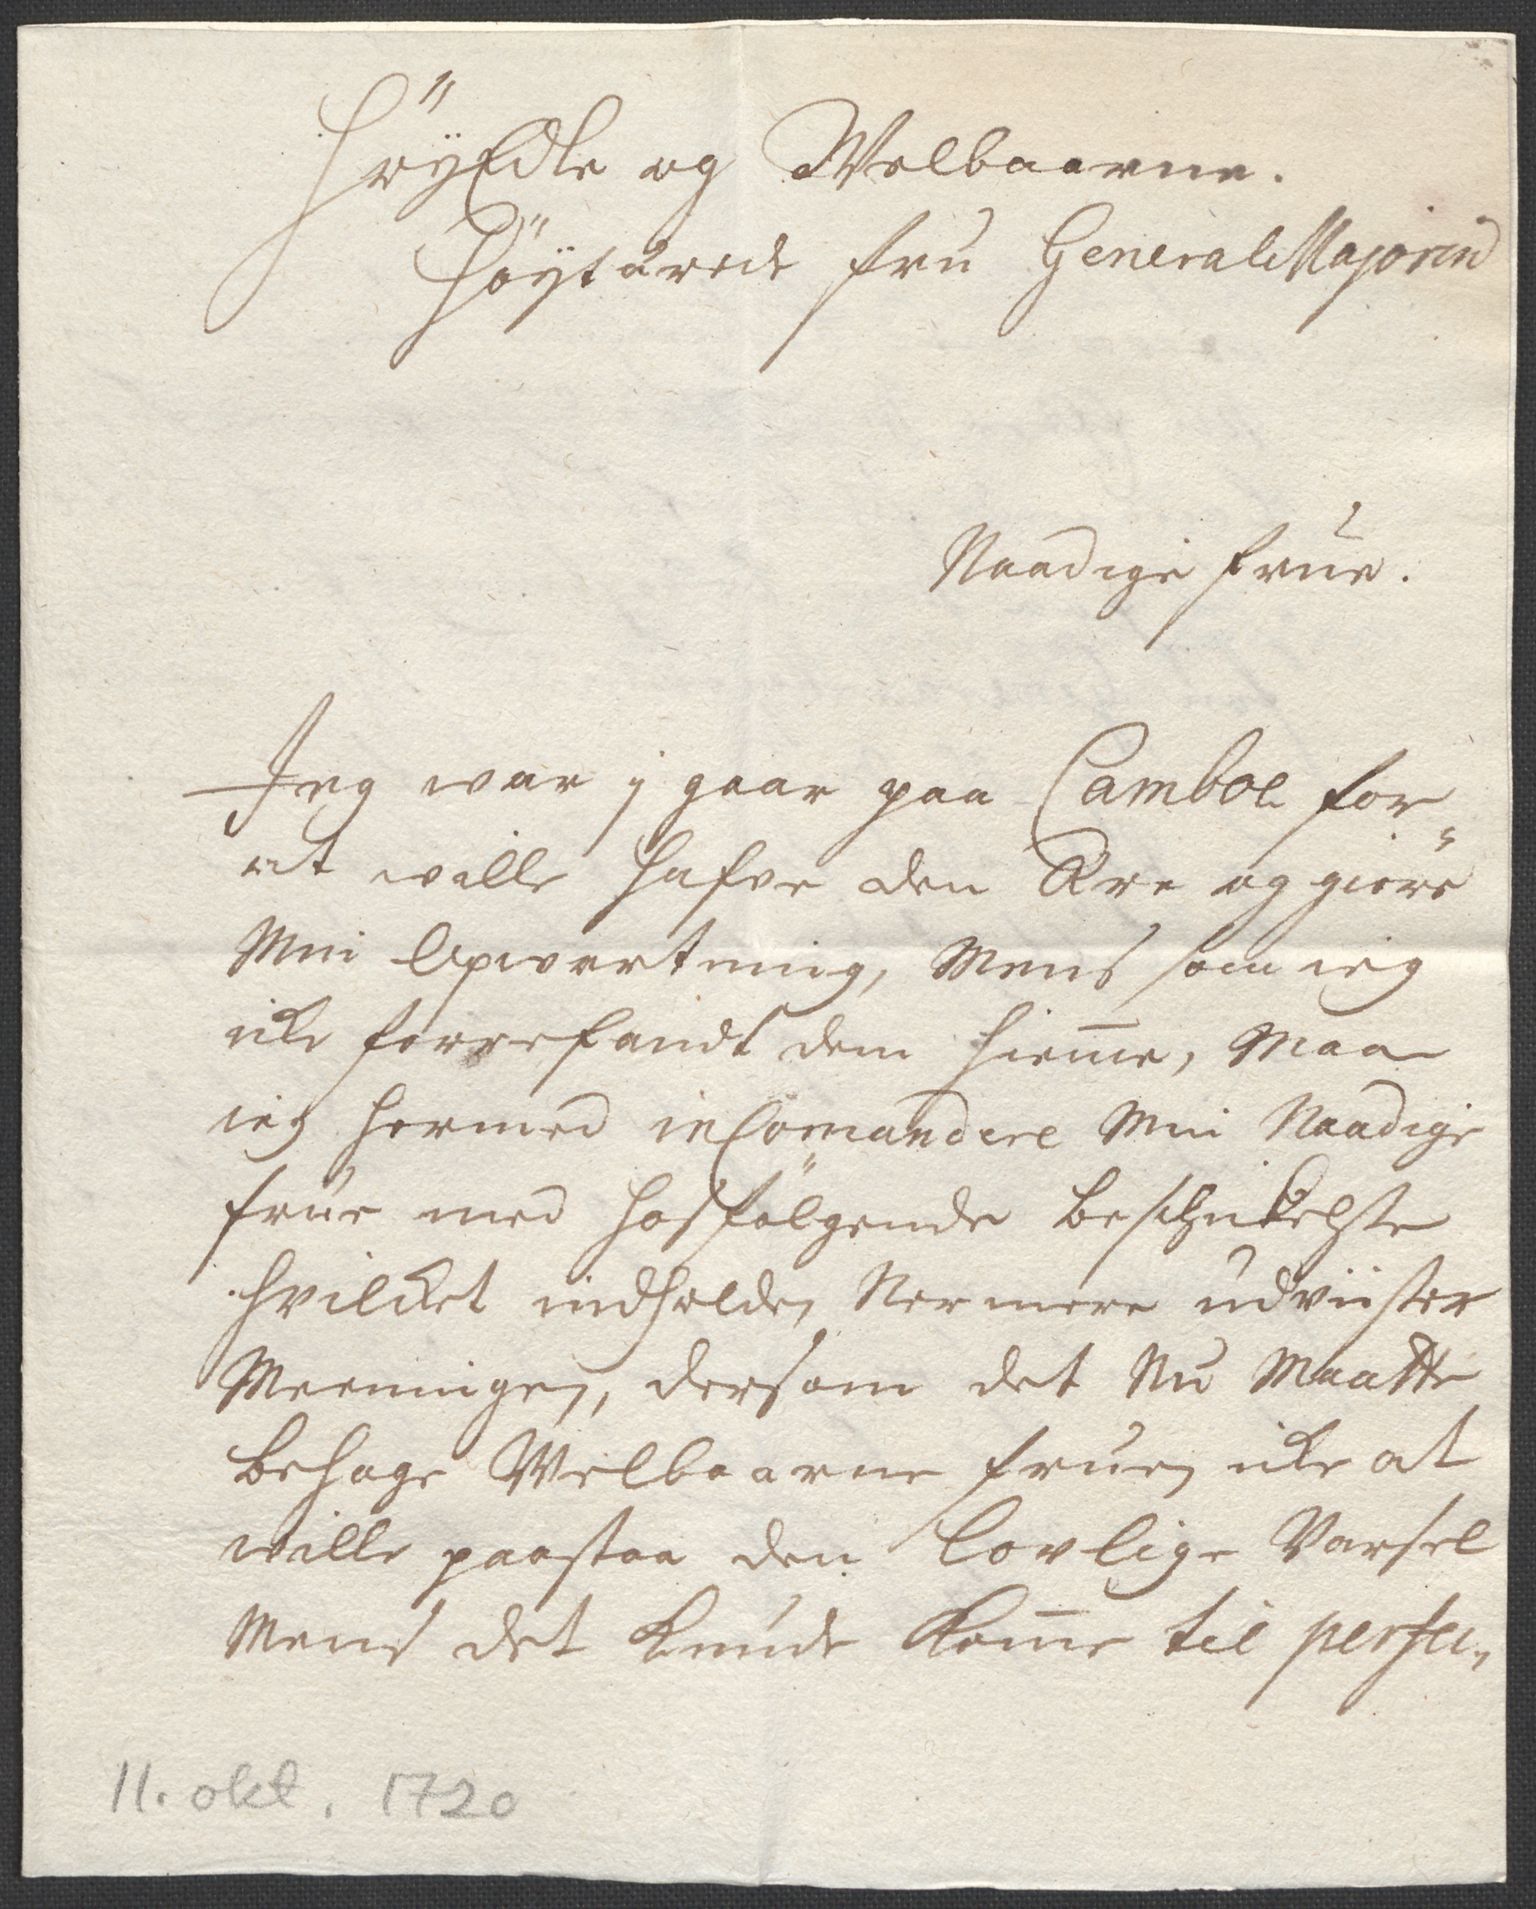 HöyEdle og Welbaarne.
Höÿtärede fru GeneralMajorin
Naadige frue.
Jeg war j gaar paa Camboe for
at wille hafve den Ære og giöre
Min Opwartning, Mens som ieg
icke forrefandt dem hiemme, Maa
ieg hermed incomandere Min Naadige
frue med hosfölgende beschickelsse
hvilcket indholden Nermere udviister
Meeningen, dersom det Nu Maatte
behage Welbaarne fruen icke at
wille paastaa den lovlige Varsel
Mens det kunde komme til perfec„
11. okt. 1720